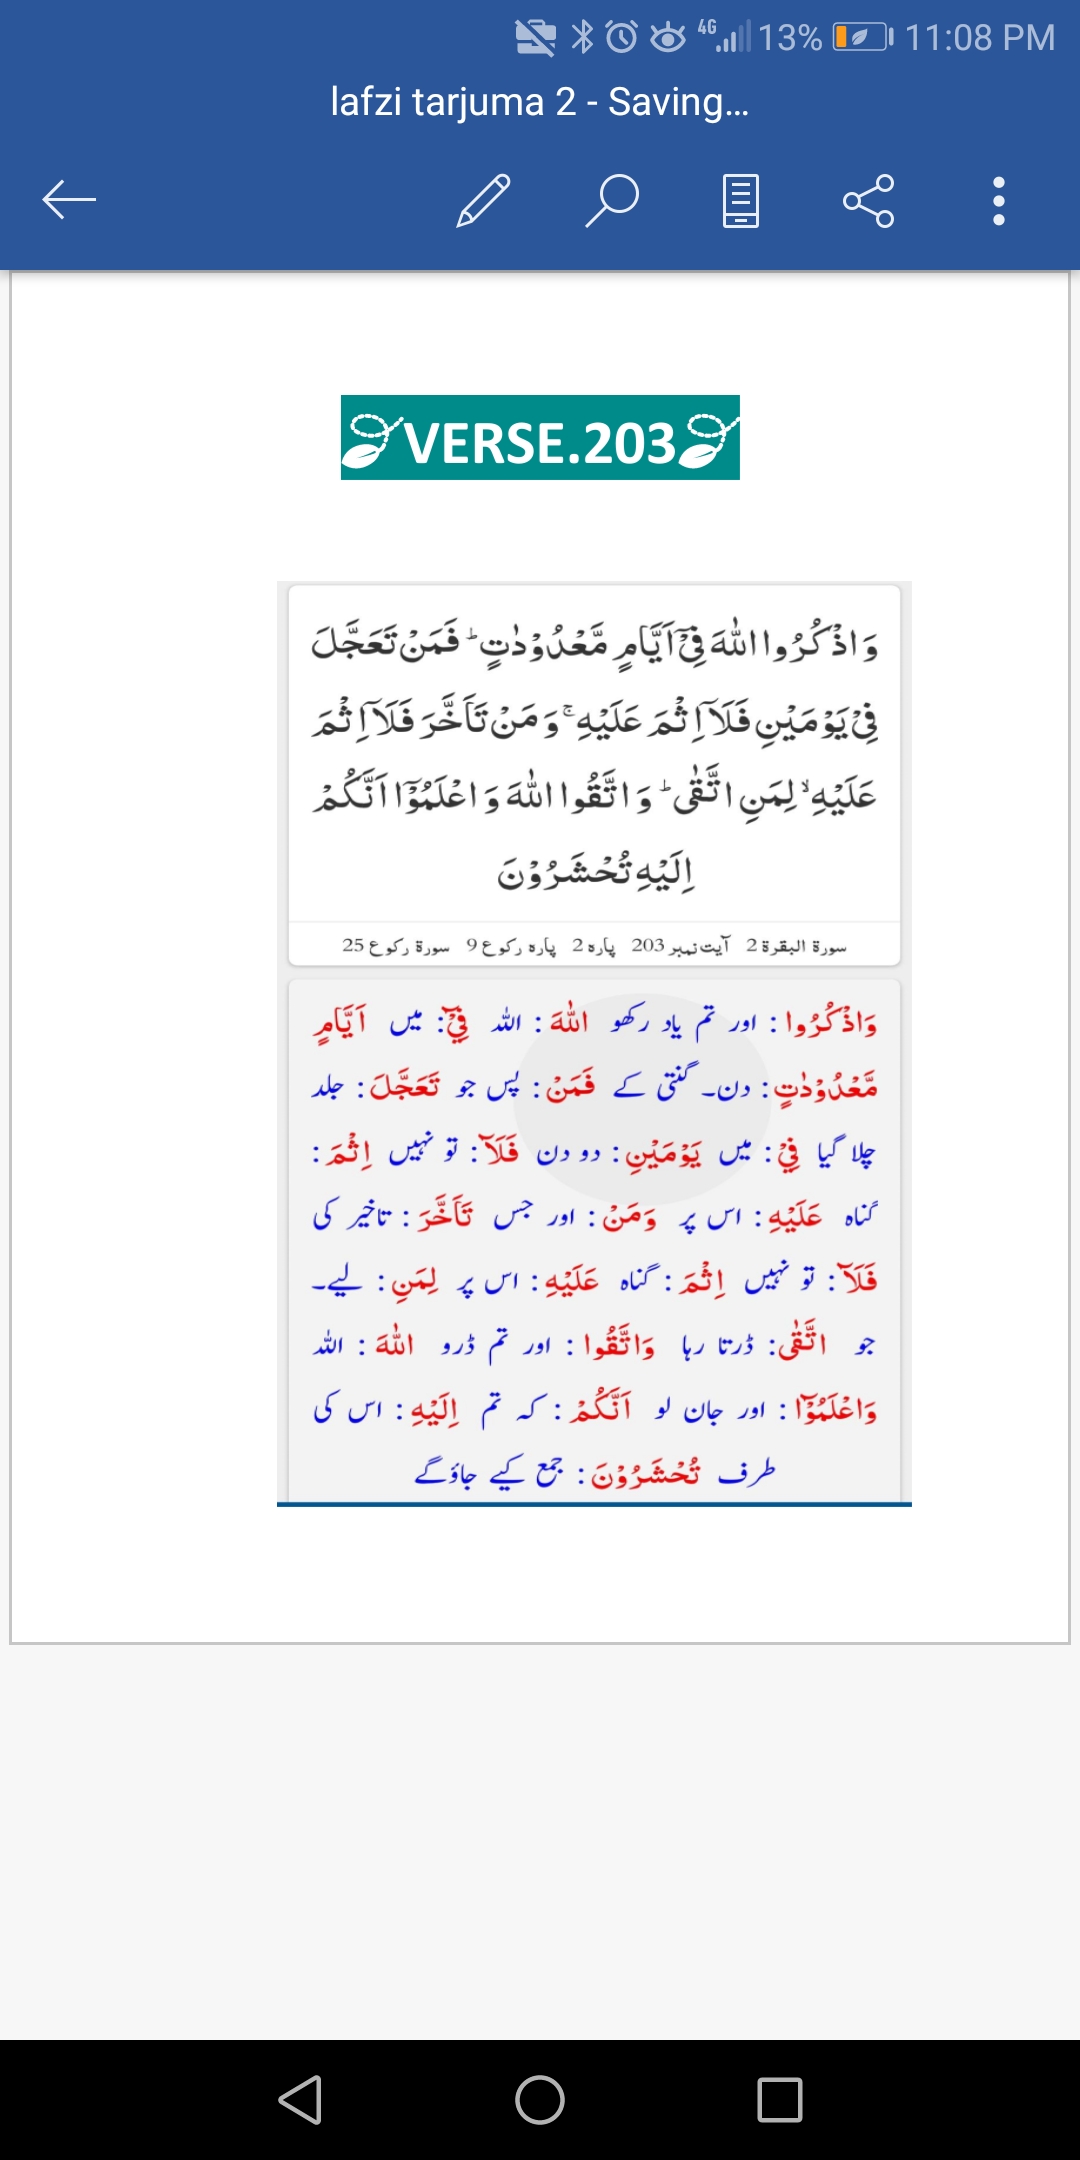 4G 13% 11:08 PM
lafzi tarjuma 2 - Saving...
VERSE.203
وَ اذْكُرُوا اللّٰهَ فِیْۤ اَیَّامٍ مَّعْدُوْدٰتٍ ؕ فَمَنْ تَعَجَّلَ
فِیْ یَوْمَیْنِ فَلَاۤ اِثْمَ عَلَیْهِ ۚ وَ مَنْ تَاَخَّرَ فَلَاۤ اِثْمَ
عَلَیْهِ ۙ لِمَنِ اتَّقٰی ؕ وَ اتَّقُوا اللّٰهَ وَ اعْلَمُوْۤا اَنَّكُمْ
اِلَیْهِ تُحْشَرُوْنَ
سورۃ البقرۃ 2 آیت نمبر 203 پارہ 2 پارہ رکوع 9 سورۃ رکوع 25
وَاذْكُرُوا : اور تم یاد رکھو اللّٰهَ : اللہ فِیْۤ : میں اَیَّامٍ
مَّعْدُوْدٰتٍ : دن۔ گنتی کے فَمَنْ : پس جو تَعَجَّلَ : جلد
چلا گیا فِیْ : میں یَوْمَیْنِ : دو دن فَلَاۤ : تو نہیں اِثْمَ :
گناہ عَلَیْهِ : اس پر وَمَنْ : اور جس تَاَخَّرَ : تاخیر کی
فَلَاۤ : تو نہیں اِثْمَ : گناہ عَلَیْهِ : اس پر لِمَنِ : لیے۔
جو اتَّقٰی : ڈرتا رہا وَاتَّقُوا : اور تم ڈرو اللّٰهَ : اللہ
وَاعْلَمُوْۤا : اور جان لو اَنَّكُمْ : کہ تم اِلَیْهِ : اس کی
طرف تُحْشَرُوْنَ : جمع کیے جاؤگے